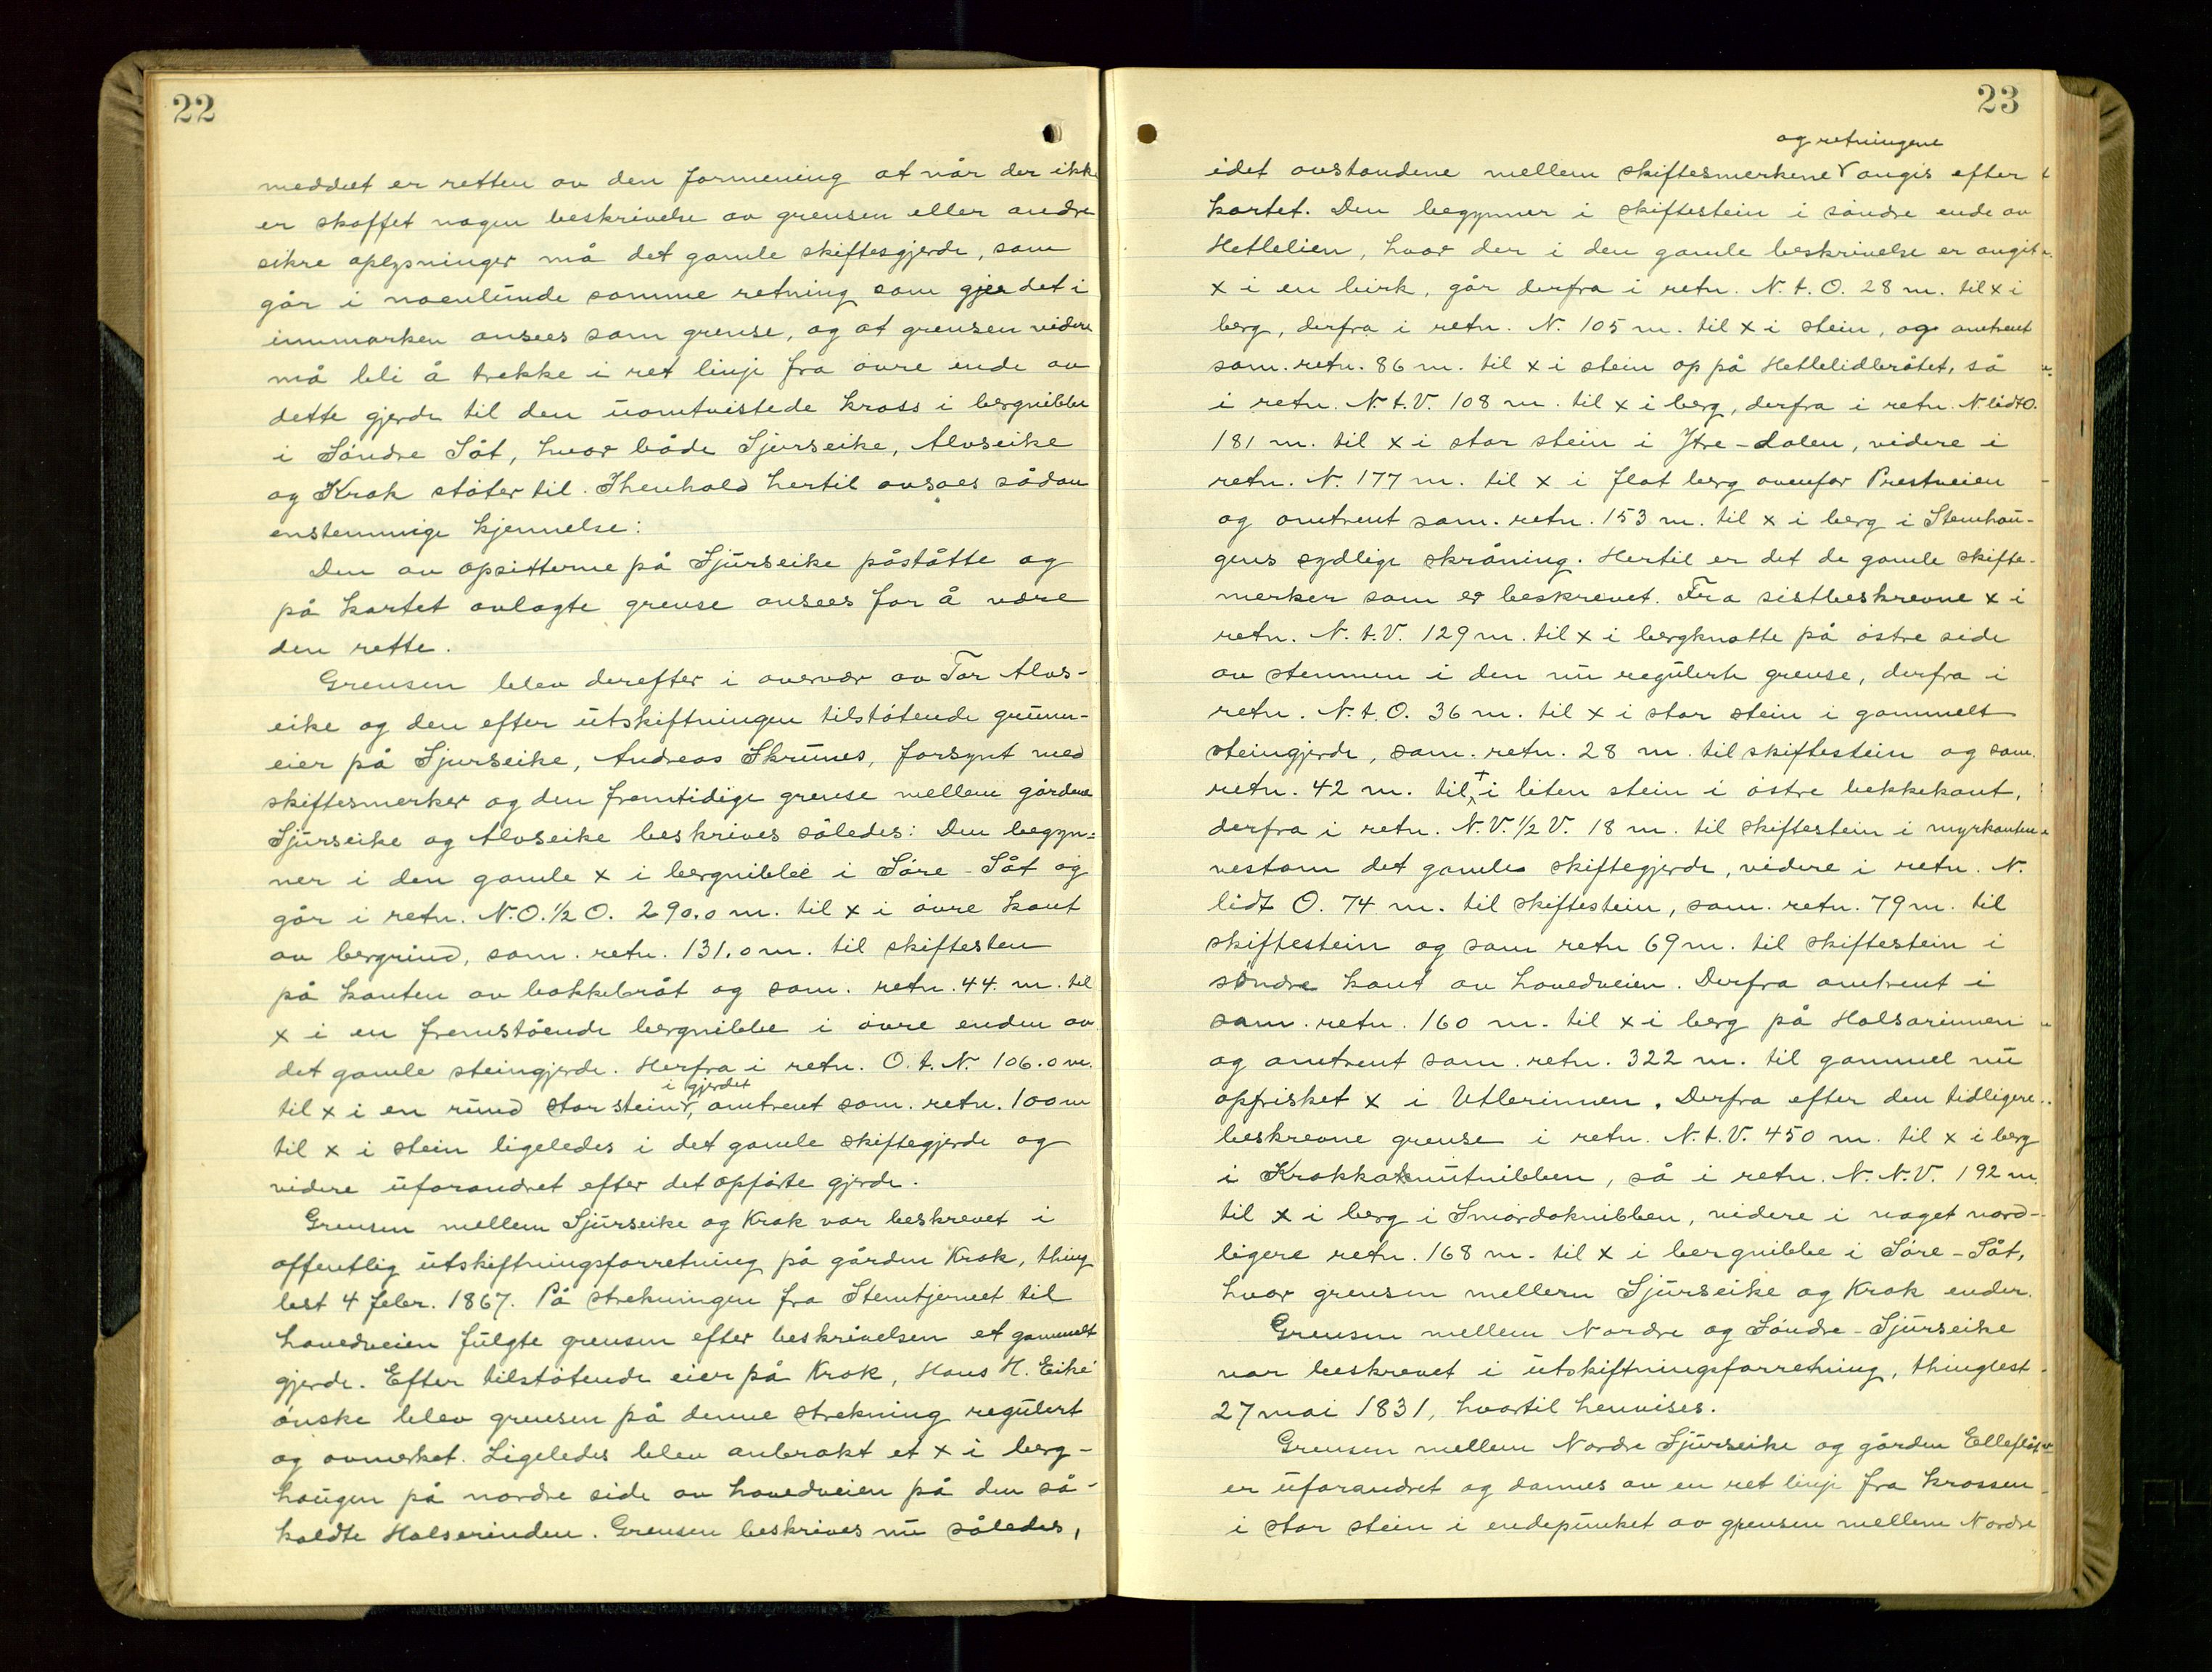 22
meddelt er retten av den formening at når der ikke
er skaffet nogen beskrivelse av grensen eller andre
sikre oplysninger må det gamle skiftesgjerde, som
går i noenlunde samme retning som gjerdet i
innmarken ansees som grense, og at grensen videre
må bli å trekke i ret linje fra øvre ende av
dette gjerde til den uomtvistede kross i bergnibbe
i Søndre Såt, hvor både Sjurseike, Alvseike
og Krok støter til. I henhold hertil avsaes sådan
enstemmige kjennelse:
Den av opsitterne på Sjurseike påståtte og
på kartet avlagte grense ansees for å være
den rette.
Grensen blev derefter i overvær av Tor Alvs-
eike og den efter utskiftningen tilstøtende grunn-
eier på Sjurseike, Andreas Skrunes, forsynt med
skiftesmerker og den fremtidige grense mellem gårdene
Sjurseike og Alvseike beskrives således: Den begyn-
ner i den gamle x i bergnibbe i Søre-Såt og
går i retn. N.O.½ O. 290,0 m. til x i øvre kant
av bergrind, sam. retn. 131.0 m. til skiftesten
på kanten av bakkebråt og sam. retn. 44. m. til
x i en fremstående bergnibbe i øvre enden av
det gamle steingjerde. Herfra i retn. O.t.N. 106.0 m.
i gjerdet
til x i en rund stor stein, omtrent sam. retn. 100 m
til x i stein ligeledes i det gamle skiftegjerde og
videre uforandret efter det opførte gjerde.
Grensen mellem Sjurseike og Krok var beskrevet i
offentlig utskiftningsforretning på gården Krok, thing
lest 4 febr. 1867. På strekningen fra Stemtjernet til
hovedveien fulgte grensen efter beskrivelsen et gammelt
gjerde. Efter tilstøtende eier på Krok, Hans H. Eike'
ønske blev grensen på denne strekning regulert
og avmerket. Ligeledes blev anbrakt et x i berg-
haugen på nordre side av hovedveien på den så-
kaldte Halserinden. Grensen beskrives nu således,
23
og retningene
idet avstandene mellem skiftesmerkene angis efter
kartet. Den begynner i skiftestein i søndre ende av
Hetlelien, hvor der i den gamle beskrivelse er angit
x i en birk, går derfra i retn. N.t.O. 28 m. til x i
berg, derfra i retn. N. 105 m. til x i stein, og omtrent
sam. retn. 86 m. til x i stein op på Hetlelidbråtet, så
i retn. N.t.V. 108 m. til x i berg, derfra i retn. N. lidt O.
181 m. til x i stor stein i Ytre-dalen, videre i
retn. N. 177 m. til x i flat berg ovenfor Prestveien
og omtrent sam. retn. 153 m. til x i berg i Stemhau-
gens sydlige skråning. Hertil er det de gamle skifte-
merker som er beskrevet. Fra sistbeskrevne x i
retn. N.t.V. 129 m. til x i bergknatte på østre side
av stemmen i den nu regulerte grense, derfra i
retn. N.t.O. 36 m. til x i stor stein i gammelt
steingjerde, sam. retn. 28 m. til skiftestein og sam.
retn. 42 m. til + i liten stein i østre bekkekant,
derfra i retn. N.V.½ V. 18 m. til skiftestein i myrkanten
vestom det gamle skiftegjerde, videre i retn. N.
lidt O. 74 m. til skiftestein, sam. retn. 79 m. til
skiftestein og sam retn 69 m. til skiftestein i
søndre kant av hovedveien. Derfra omtrent i
sam. retn. 160 m. til x i berg på Halsarinnen
og omtrent sam. retn. 322 m. til gammel nu
opfrisket x i Utlerinnen. Derfra efter den tidligere
beskrevne grense i retn. N.t.V. 450 m. til x i berg
i Krokkatnutnibben, så i retn. N.N.V. 192 m.
til x i berg i Smørdoknibben, videre i noget nord-
ligere retn. 168 m. til x i bergnibbe i Søre-Såt,
hvor grensen mellem Sjurseike og Krok ender.
Grensen mellem Nordre og Søndre-Sjurseike
var beskrevet i utskiftningsforretning, thinglest
27 mai 1831, hvortil henvises.
Grensen mellem Nordre Sjurseike og gården
er uforandret og dannes av en ret linje fra krossen
i stor stein i endepunket av grensen mellem Nordre